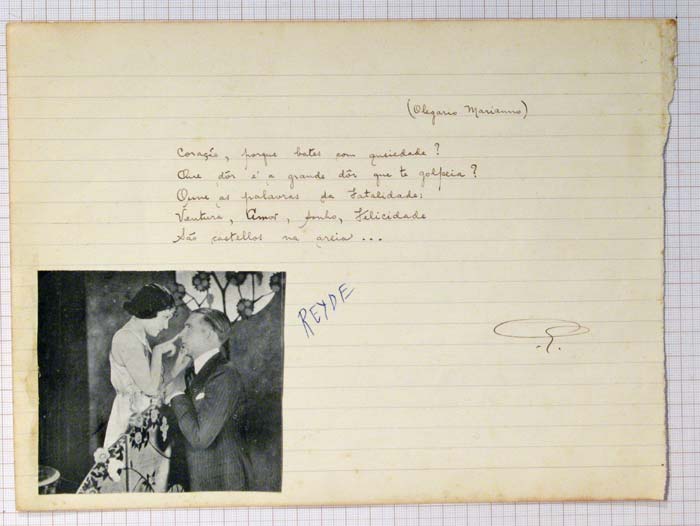 (Olegario Marianno)
Coração, porque bates com anciedade?
Que dôr é a grande dôr que te golpeia?
Ouve as palavras da Fatalidade:
Ventura, Amor, Sonho, Felicidade
São castellos na areia...
REYDE